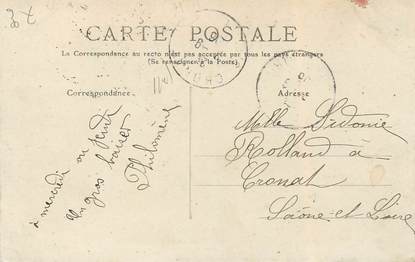 CARTE POSTALE
La Correspondance au recto n'est pas acceptée par tous les pays étrangers
(Se renseigner à la Poste).
Correspondance
à mercredi ou jeudi
Un gros baiser
Philomène
Adresse
Melle Sidonie
Rolland à
Cronat
Saône-et-Loire